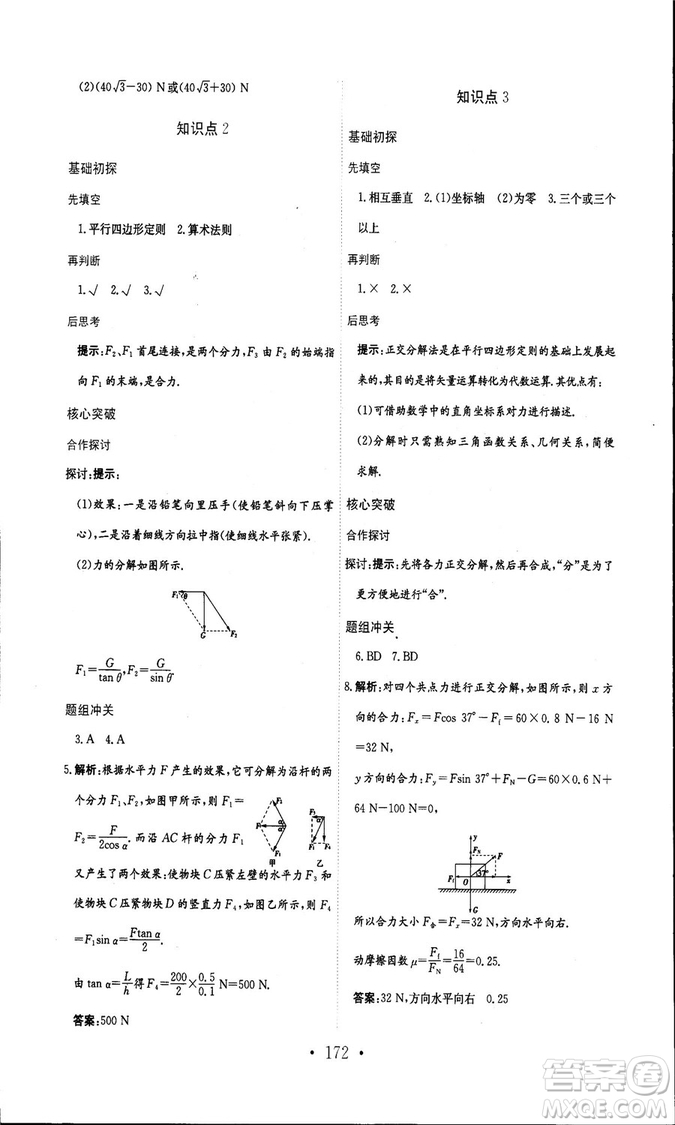 (2)(40√3－30) N或(40√3＋30) N
知识点 2
基础初探
先填空
1.平行四边形定则 2.算术法则
再判断
1.√ 2.√ 3.√
后思考
提示:F₂、F₁ 首尾连接,是两个分力,F₃ 由 F₂ 的始端指
向 F₁ 的末端,是合力.
核心突破
合作探讨
探讨:提示:
(1)效果:一是沿铅笔向里压手(使铅笔斜向下压掌
心),二是沿着细线方向拉中指(使细线水平张紧).
(2)力的分解如图所示.
F₁ θ
G F₂
F₁＝G/tan θ,F₂＝G/sin θ.
题组冲关
3.A 4.A
5.解析:根据水平力 F 产生的效果,它可分解为沿杆的两
个分力 F₁、F₂,如图甲所示,则 F₁＝
F₂＝F/2cos α. 而沿 AC 杆的分力 F₁
甲 乙
又产生了两个效果:使物块 C 压紧左壁的水平力 F₃ 和
使物块 C 压紧物块 D 的竖直力 F₄,如图乙所示,则 F₄
＝F₁sin α＝Ftan α/2.
由 tan α＝L/h得 F₄＝200/2×0.5/0.1 N＝500 N.
答案:500 N
知识点 3
基础初探
先填空
1.相互垂直 2.(1)坐标轴 (2)为零 3.三个或三个
以上
再判断
1.× 2.×
后思考
提示:正交分解法是在平行四边形定则的基础上发展起
来的,其目的是将矢量运算转化为代数运算.其优点有:
(1)可借助数学中的直角坐标系对力进行描述.
(2)分解时只需熟知三角函数关系、几何关系,简便、容
易求解.
核心突破
合作探讨
探讨:提示:先将各力正交分解,然后再合成,“分”是为了
更方便地进行“合”.
题组冲关
6.BD 7.BD
8.解析:对四个共点力进行正交分解,如图所示,则 x 方
向的合力:Fₓ＝Fcos 37°－F_f＝60×0.8 N－16 N
＝32 N,
y方向的合力:F_y＝Fsin 37°＋F_N－G＝60×0.6 N＋
64 N－100 N＝0,
y
F_N F
F_f O 37° x
G
所以合力大小 F合＝Fₓ＝32 N,方向水平向右.
动摩擦因数 μ＝F_f/F_N＝16/64＝0.25.
答案:32 N,方向水平向右 0.25
• 172 •
答案圈
MXQE.COM